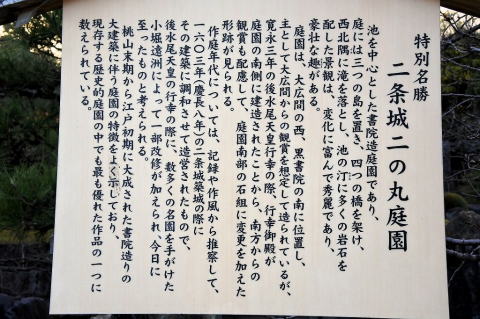 特別名勝
二条城二の丸庭園
池を中心とした書院造庭園であり、
庭には三つの島を置き、四つの橋を架け、
西北隅に滝を落とし、池の汀に多くの岩石を
配した景観は、変化に富んで秀麗であり、
豪壮な趣がある。
庭園は、大広間の西、黒書院の南に位置し、
主として大広間からの観賞を想定して造られているが、
寛永三年の後水尾天皇行幸の際、行幸御殿が
庭園の南側に建造されたことから、南方からの
観賞も配慮して、庭園南部の石組に変更を加えた
形跡が見られる。
作庭年代については、記録や作風から推察して、
一六〇三年（慶長八年）の二条城築城の際に
その建築に調和させて造営されたもので、
後水尾天皇の行幸の際に、数多くの名園を手がけた
小堀遠洲によって一部改修が加えられ、今日に
至ったものと考えられる。
桃山末期から江戸初期に大成された書院造りの
大建築に伴う庭園の特徴をよく示しており、
現存する歴史的庭園の中でも最も優れた作品の一つに
数えられている。